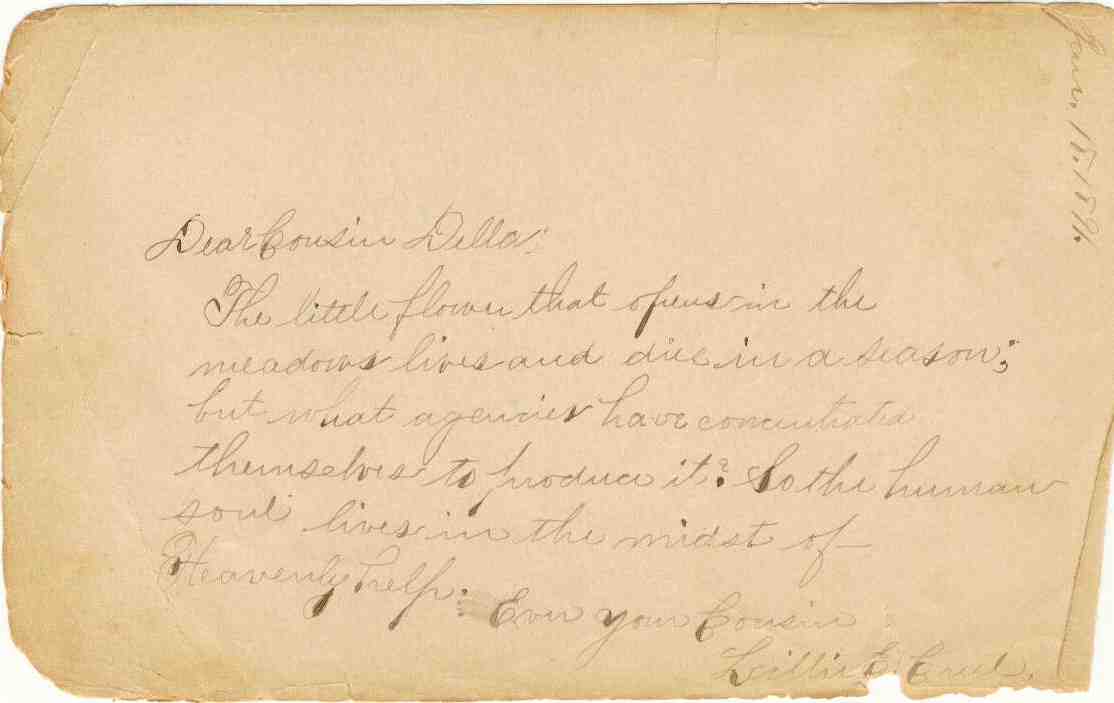 Jan. 18. 189
Dear Cousin Della:
The little flower that opens in the
meadows lives and dies in a season;
but what agencies have concentrated
themselves to produce it? So the human
soul lives in the midst of
Heavenly help.
Ever your Cousin
Lillie E.